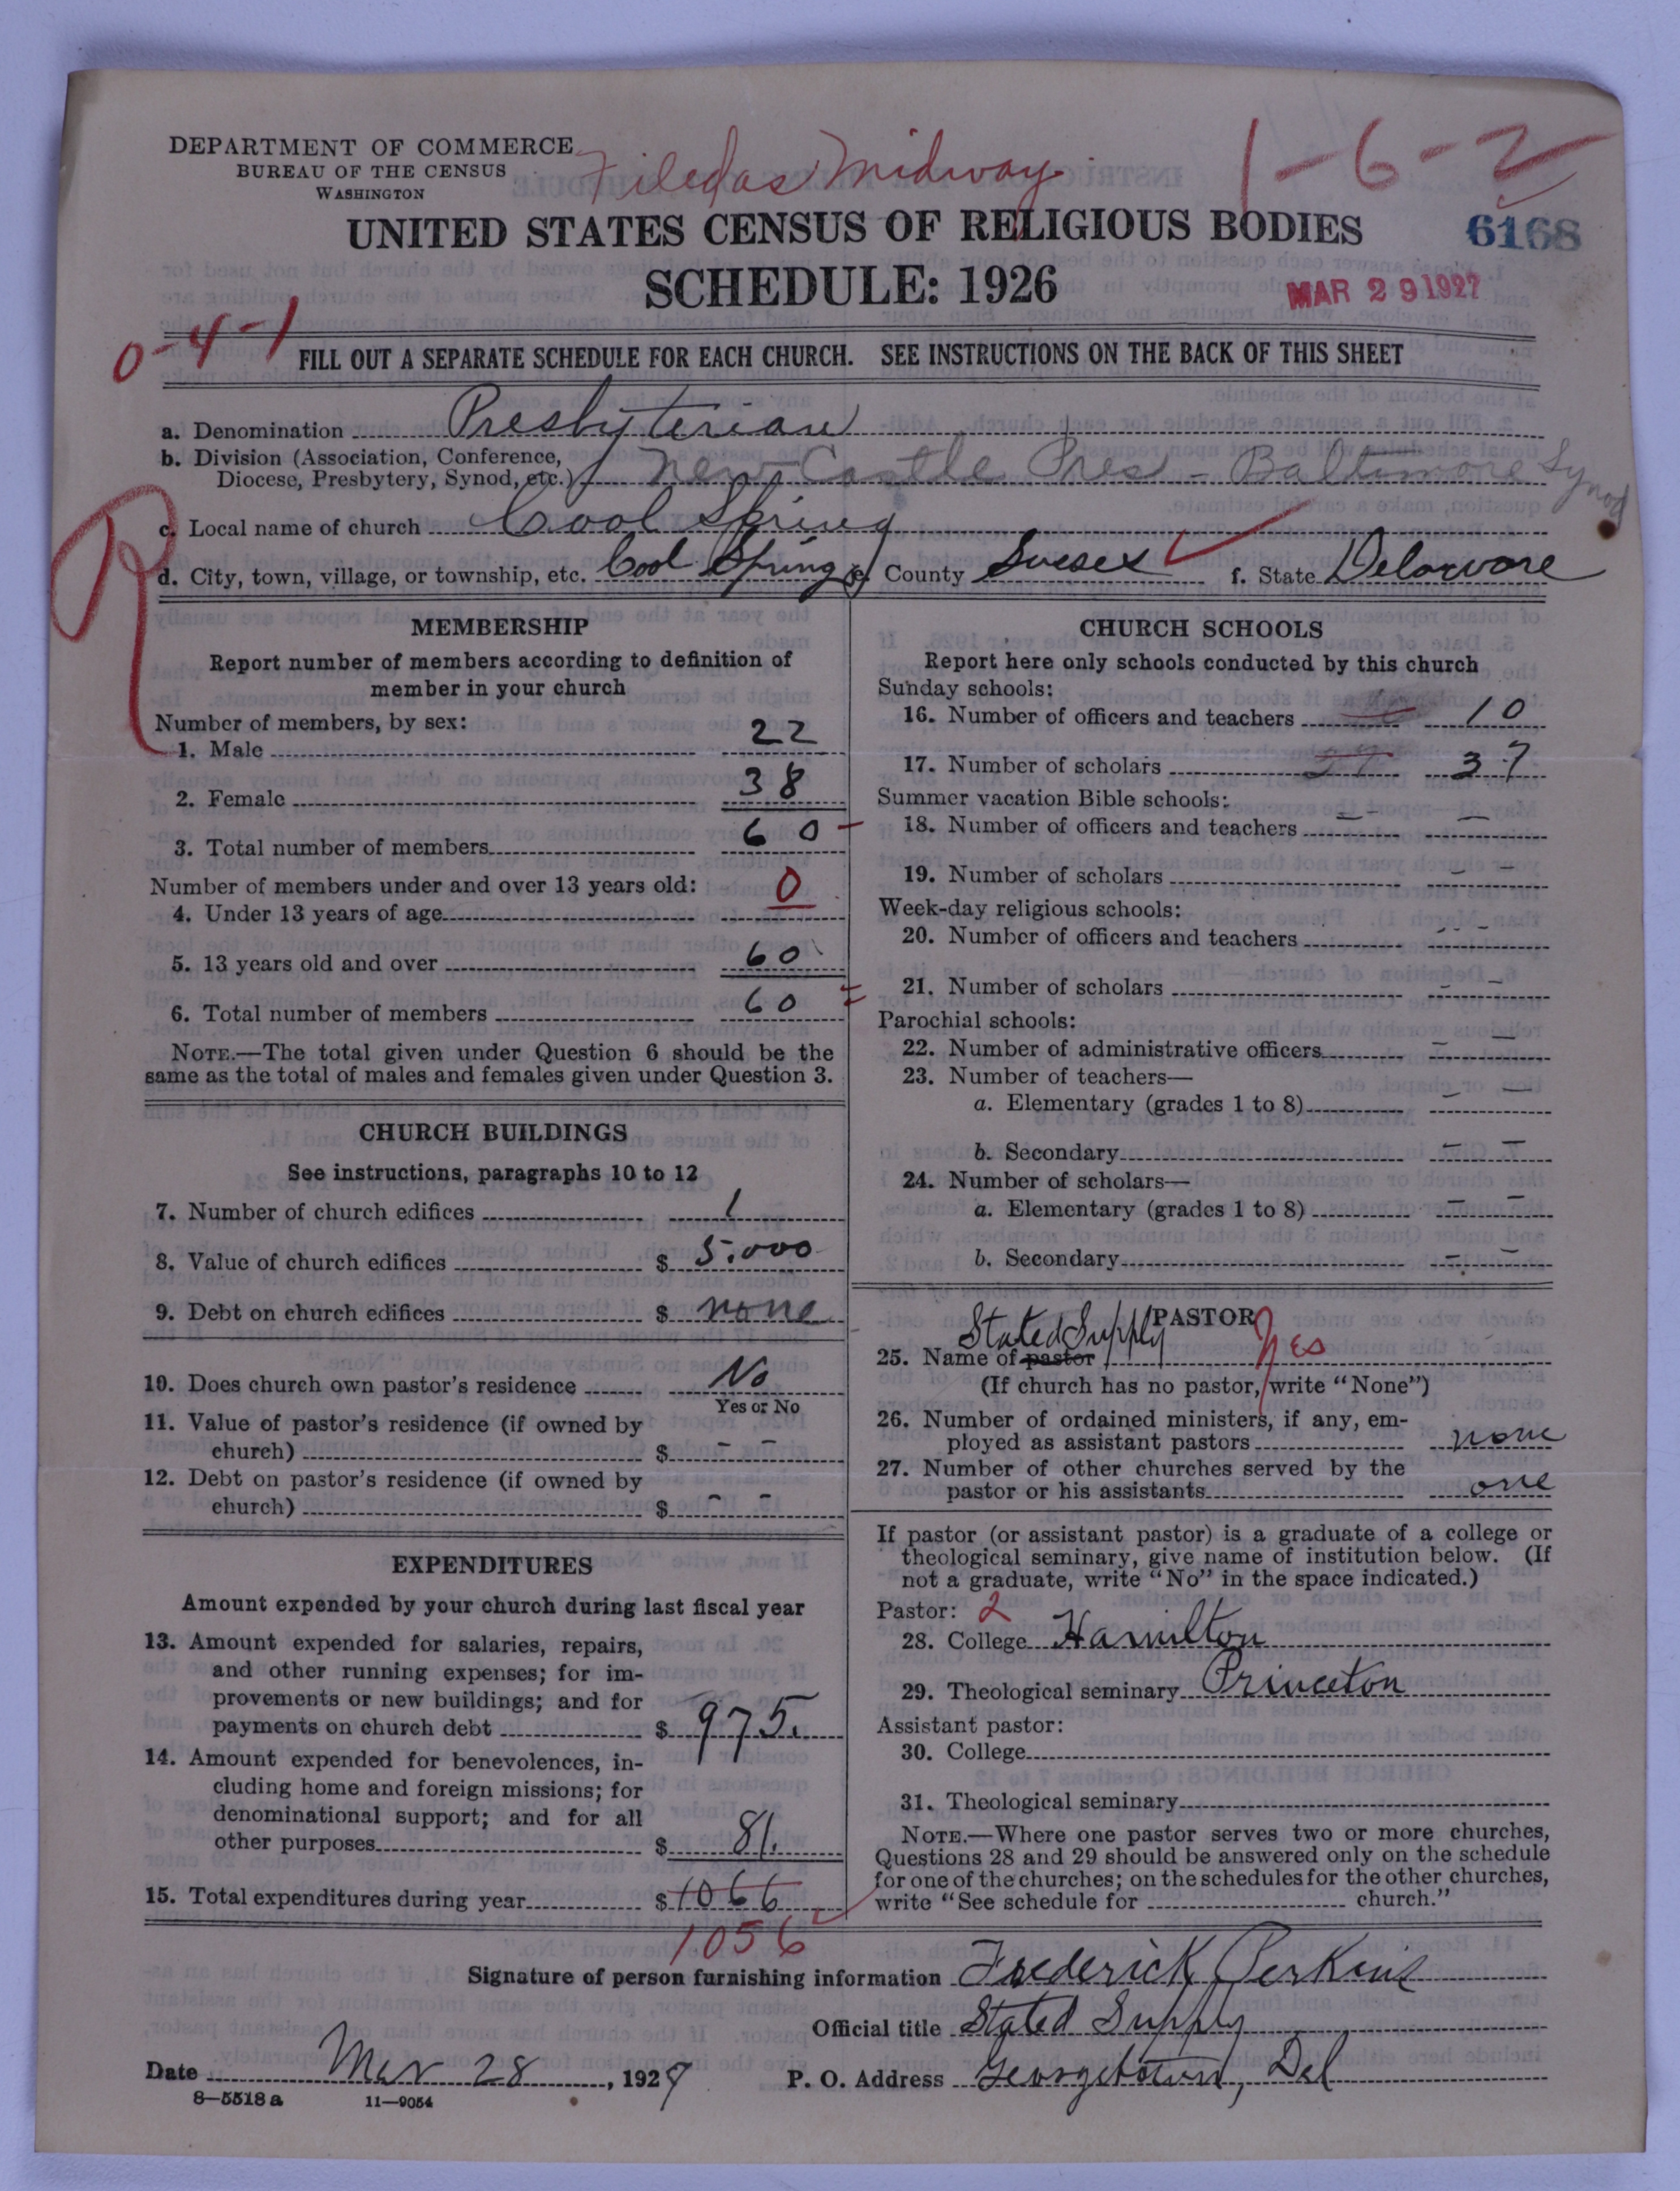 DEPARTMENT OF COMMERCE
BUREAU OF THE CENSUS
WASHINGTON
Filed as Midway
1-6-2
UNITED STATES CENSUS OF RELIGIOUS BODIES
6168
SCHEDULE: 1926
MAR 29 1927
0-4-1
FILL OUT A SEPARATE SCHEDULE FOR EACH CHURCH. SEE INSTRUCTIONS ON THE BACK OF THIS SHEET
a. Denomination Presbyterian
b. Division (Association, Conference,
Diocese, Presbytery, Synod, etc.) New Castle Pres - Baltimore Synod
c. Local name of church Cool Spring
R
d. City, town, village, or township, etc. Cool Spring e. County Sussex f. State Delaware
MEMBERSHIP
Report number of members according to definition of
member in your church
Number of members, by sex:
1. Male 22
2. Female 38
3. Total number of members 60
Number of members under and over 13 years old:
4. Under 13 years of age 0
5. 13 years old and over 60
6. Total number of members 60
NOTE.—The total given under Question 6 should be the
same as the total of males and females given under Question 3.
CHURCH BUILDINGS
See instructions, paragraphs 10 to 12
7. Number of church edifices 1
8. Value of church edifices $ 5.000
9. Debt on church edifices $ none
10. Does church own pastor's residence No
Yes or No
11. Value of pastor's residence (if owned by
church) $ - -
12. Debt on pastor's residence (if owned by
church) $ - -
EXPENDITURES
Amount expended by your church during last fiscal year
13. Amount expended for salaries, repairs,
and other running expenses; for im-
provements or new buildings; and for
payments on church debt $ 975.
14. Amount expended for benevolences, in-
cluding home and foreign missions; for
denominational support; and for all
other purposes $ 81.
15. Total expenditures during year $ 1066
1056
CHURCH SCHOOLS
Report here only schools conducted by this church
Sunday schools:
16. Number of officers and teachers 10
17. Number of scholars 37
Summer vacation Bible schools:
18. Number of officers and teachers - -
19. Number of scholars - -
Week-day religious schools:
20. Number of officers and teachers - -
21. Number of scholars - -
Parochial schools:
22. Number of administrative officers - -
23. Number of teachers—
a. Elementary (grades 1 to 8) - -
b. Secondary - -
24. Number of scholars—
a. Elementary (grades 1 to 8) - -
b. Secondary - -
PASTOR
Stated Supply
25. Name of pastor Yes
(If church has no pastor, write "None")
26. Number of ordained ministers, if any, em-
ployed as assistant pastors none
27. Number of other churches served by the
pastor or his assistants one
If pastor (or assistant pastor) is a graduate of a college or
theological seminary, give name of institution below. (If
not a graduate, write "No" in the space indicated.)
Pastor: 2
28. College Hamilton
29. Theological seminary Princeton
Assistant pastor:
30. College
31. Theological seminary
NOTE.—Where one pastor serves two or more churches,
Questions 28 and 29 should be answered only on the schedule
for one of the churches; on the schedules for the other churches,
write "See schedule for church."
Signature of person furnishing information Frederick Perkins
Official title Stated Supply
Date Mar 28, 1927 P. O. Address Georgetown, Del
8-5518 a 11-9054